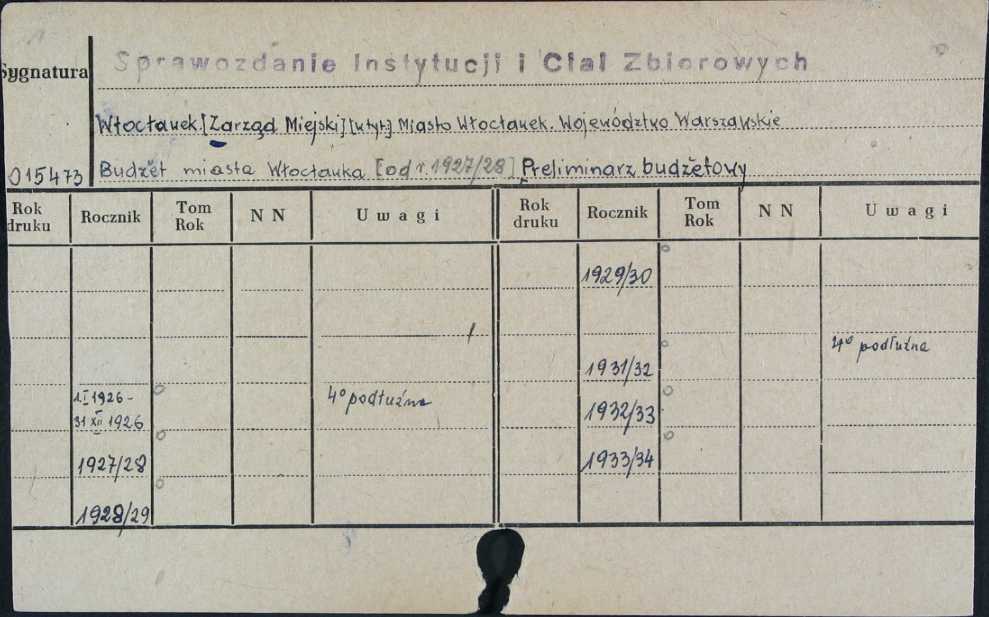 Sprawozdanie Instytucji i Ciał Zbiorowych
Sygnatura
Włocławek [Zarząd Miejski] [u tyt:] Miasto Włocławek. Województwo Warszawskie
015473
Budżet miasta Włocławka [od r. 1927/28] Preliminarz budżetowy
Rok druku Rocznik Tom Rok N N Uwagi Rok druku Rocznik Tom Rok N N Uwagi
1929/30
4° podłużna
1931/32
1.I 1926 -
31 XII 1926
4° podłużna
1932/33
1927/28
1933/34
1928/29